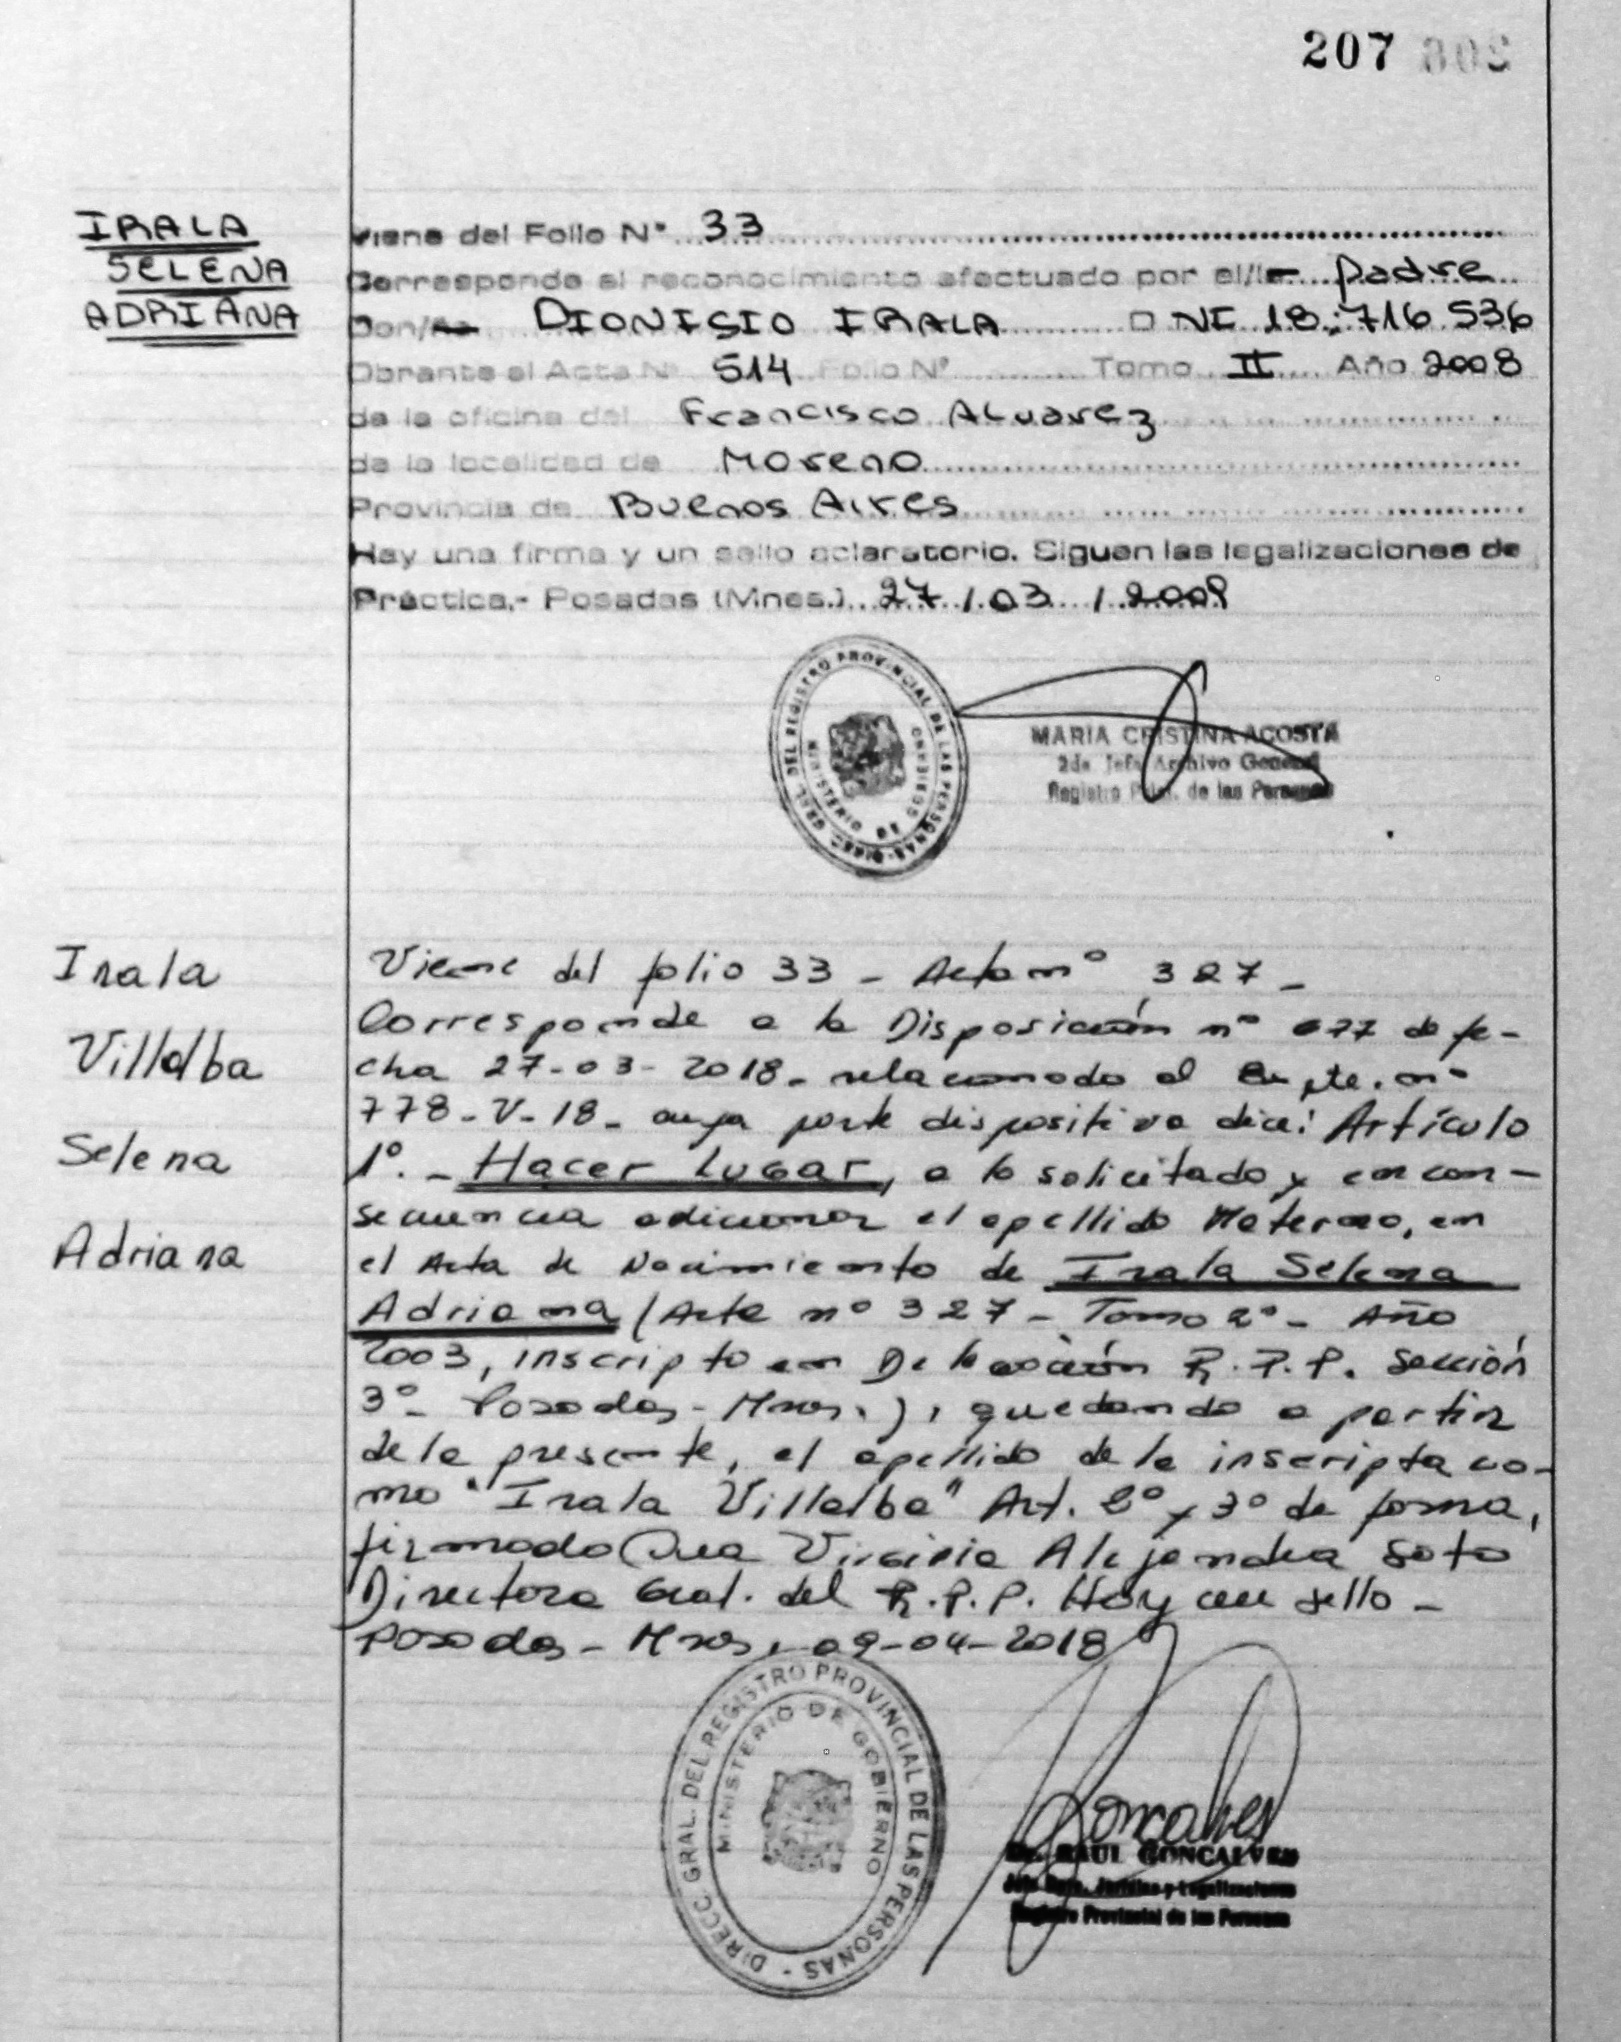 207 208
IRALA
SELENA
ADRIANA
Viene del Folio Nº 33
Corresponde al reconocimiento efectuado por el/la padre
Don/ña DIONISIO IRALA DNI 18.716 536
Obrante al Acta Nº 514 Folio Nº Tomo II Año 2008
de la oficina del Francisco Alvarez
de la localidad de Moreno
Provincia de Buenos Aires
Hay una firma y un sello aclaratorio. Siguen las legalizaciones de
Práctica.- Posadas (Mnes.) 27 / 03 / 2009
DIREC. GRAL. DEL REGISTRO PROVINCIAL DE LAS PERSONAS
MINISTERIO DE GOBIERNO
MARIA CRISTINA ACOSTA
2da Jefa Archivo General
Registro Pcial. de las Personas
Irala
Villalba
Selena
Adriana
Viene del folio 33 - Acta nº 327 -
Corresponde a la Disposición nº 677 de fe-
cha 27-03-2018. relacionado al Expte. nº
778-V-18- cuya parte dispositiva dice: Artículo
1º.- Hacer Lugar, a lo solicitado y en con-
secuencia adicionar el apellido Materno, en
el Acta de Nacimiento de Irala Selena
Adriana (Acta nº 327 - Tomo 2º - Año
2003, inscripto en Delegación R.P.P. Sección
3º- Posadas - Mnes.), quedando a partir
de la presente, el apellido de la inscripta co-
mo "Irala Villalba" Art. 2º y 3º de forma,
firmado Dra Virginia Alejandra Soto
Directora Gral. del R.P.P. Hay un sello -
Posadas - Mnes, 09-04-2018
DIRECC. GRAL. DEL REGISTRO PROVINCIAL DE LAS PERSONAS -
MINISTERIO DE GOBIERNO
Goncalves
Dr. RAUL GONCALVES
Jefe Dpto. Jurídico y Legalizaciones
Registro Provincial de las Personas